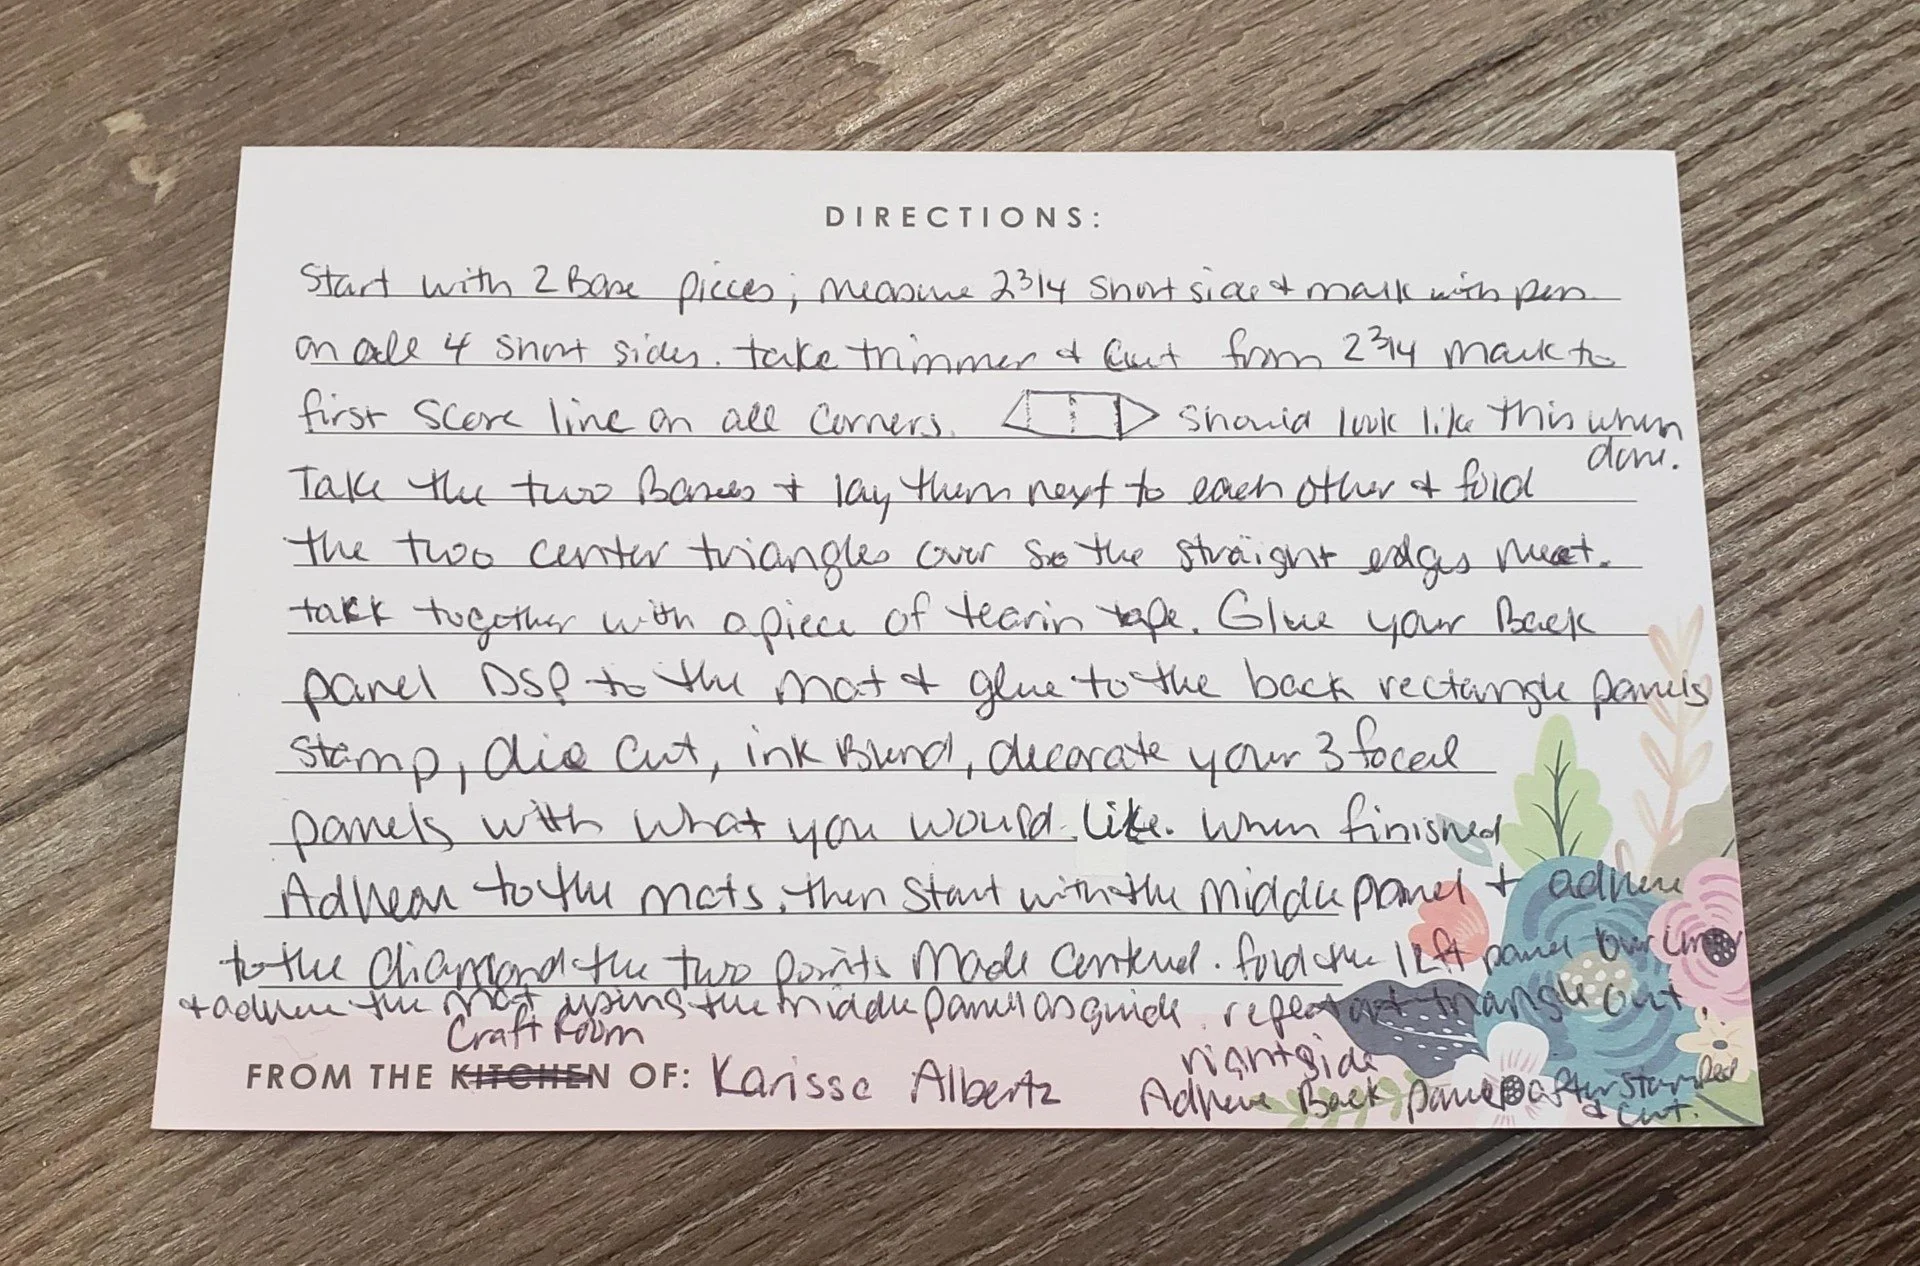 DIRECTIONS:
Start with 2 Base pieces; measure 2 3/4 short side & mark with pen
on all 4 short sides. take trimmer & Cut from 2 3/4 mark to
first score line on all corners. should look like this when
done.
Take the two Bases & lay them next to each other & fold
the two center triangles over so the straight edges meet.
tack together with a piece of tearin tape. Glue your Back
panel DSP to the mat & glue to the back rectangle panels
stamp, die cut, ink Blend, decorate your 3 focal
panels with what you would like. When finished
Adhear to the mats. then start with the middle panel & adhere
to the diamond the two points made centered. fold the left panel over
& adhere the mat using the middle panel as guide. repeat triangle out.
right side
Craft Room
FROM THE KITCHEN OF: Karisse Albertz
Adhere Back panel after stamped
& cut.